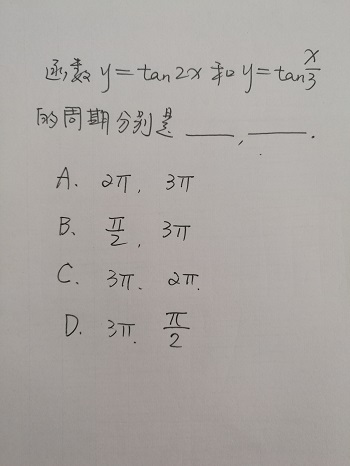 函数 y=tan2x 和 y=tan x/3
的周期分别是 ____,____.
A. 2π, 3π
B、π/2, 3π
C. 3π、2π.
D. 3π. π/2